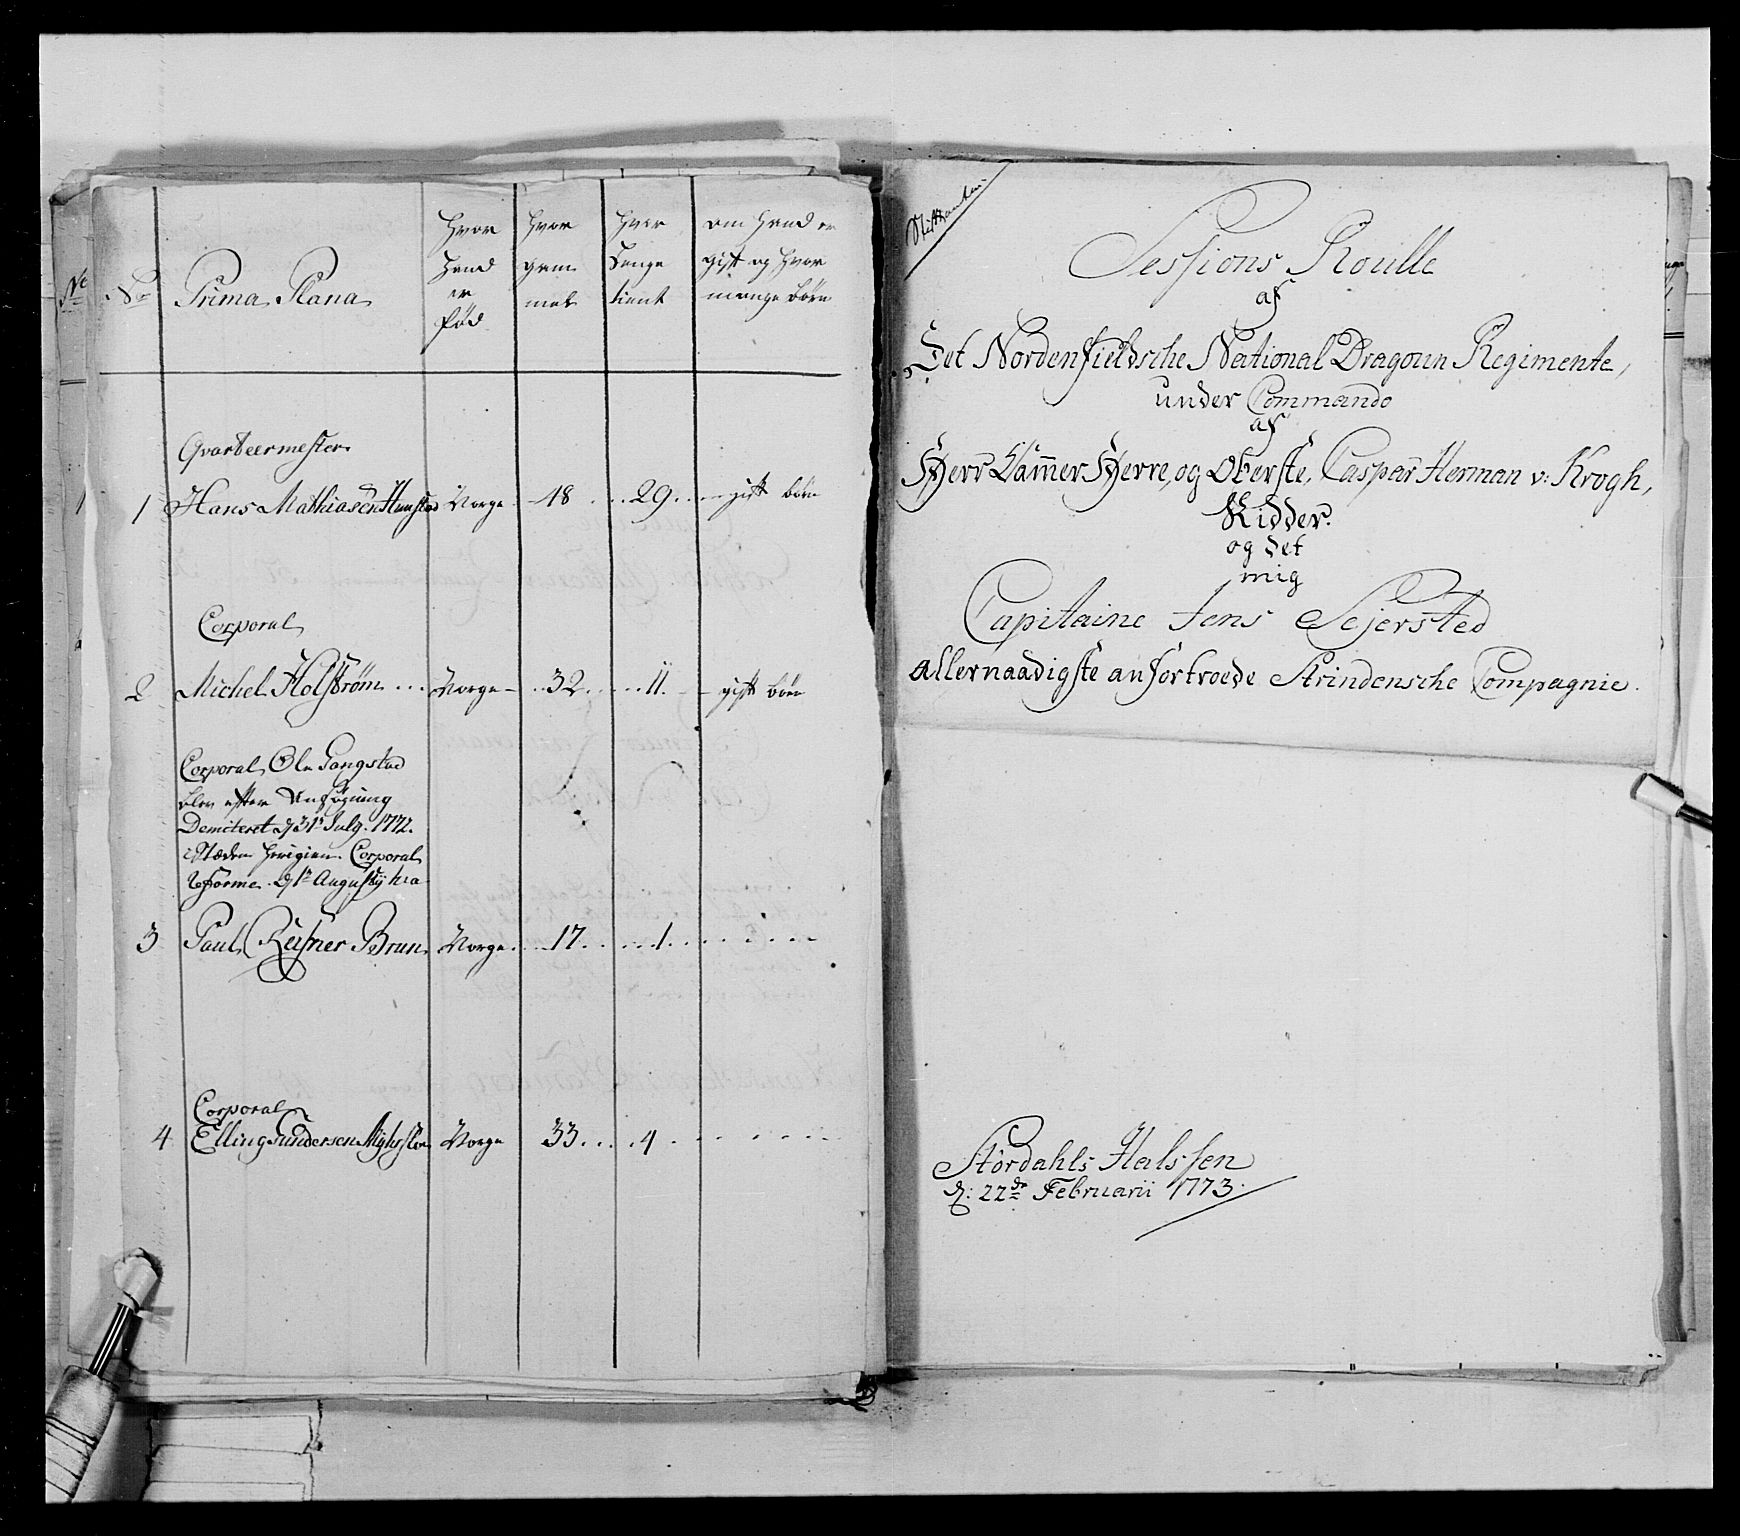 No
Prima Plana
Hvor
Hand
er
fød
Hvor
gam
mel
Hvor
Lenge
tient
om Hand er
gift og Hvor
mange børn
Qvarteermester
1 Hans Mathiasen Norge 48 29 gift børn
Corporal
2 Michel Holstrøm Norge 32 11 gift børn
Corporal Ole Gangstad
blev efter Ansøgning
Demiteret d 31te July 1772.
i Stæden Corporal
Reforme d 1te Augustij
3 Paul Reisner Brun Norge 17 1
Corporal
4 Elling Gundersen Norge 33 4
Sessions Roulle
af
Det Nordenfieldsche National Dragoun Regimente,
under Commando
af
Herr Cam̄er Herre, og Oberste, Caspar Herman v: Krogh,
Ridder.
og det
mig
Capitaine Jens Sejersted
allernaadigste anfortroede Strindensche Compagnie.
Stordahls Halssen
d: 22de Februarii 1773.